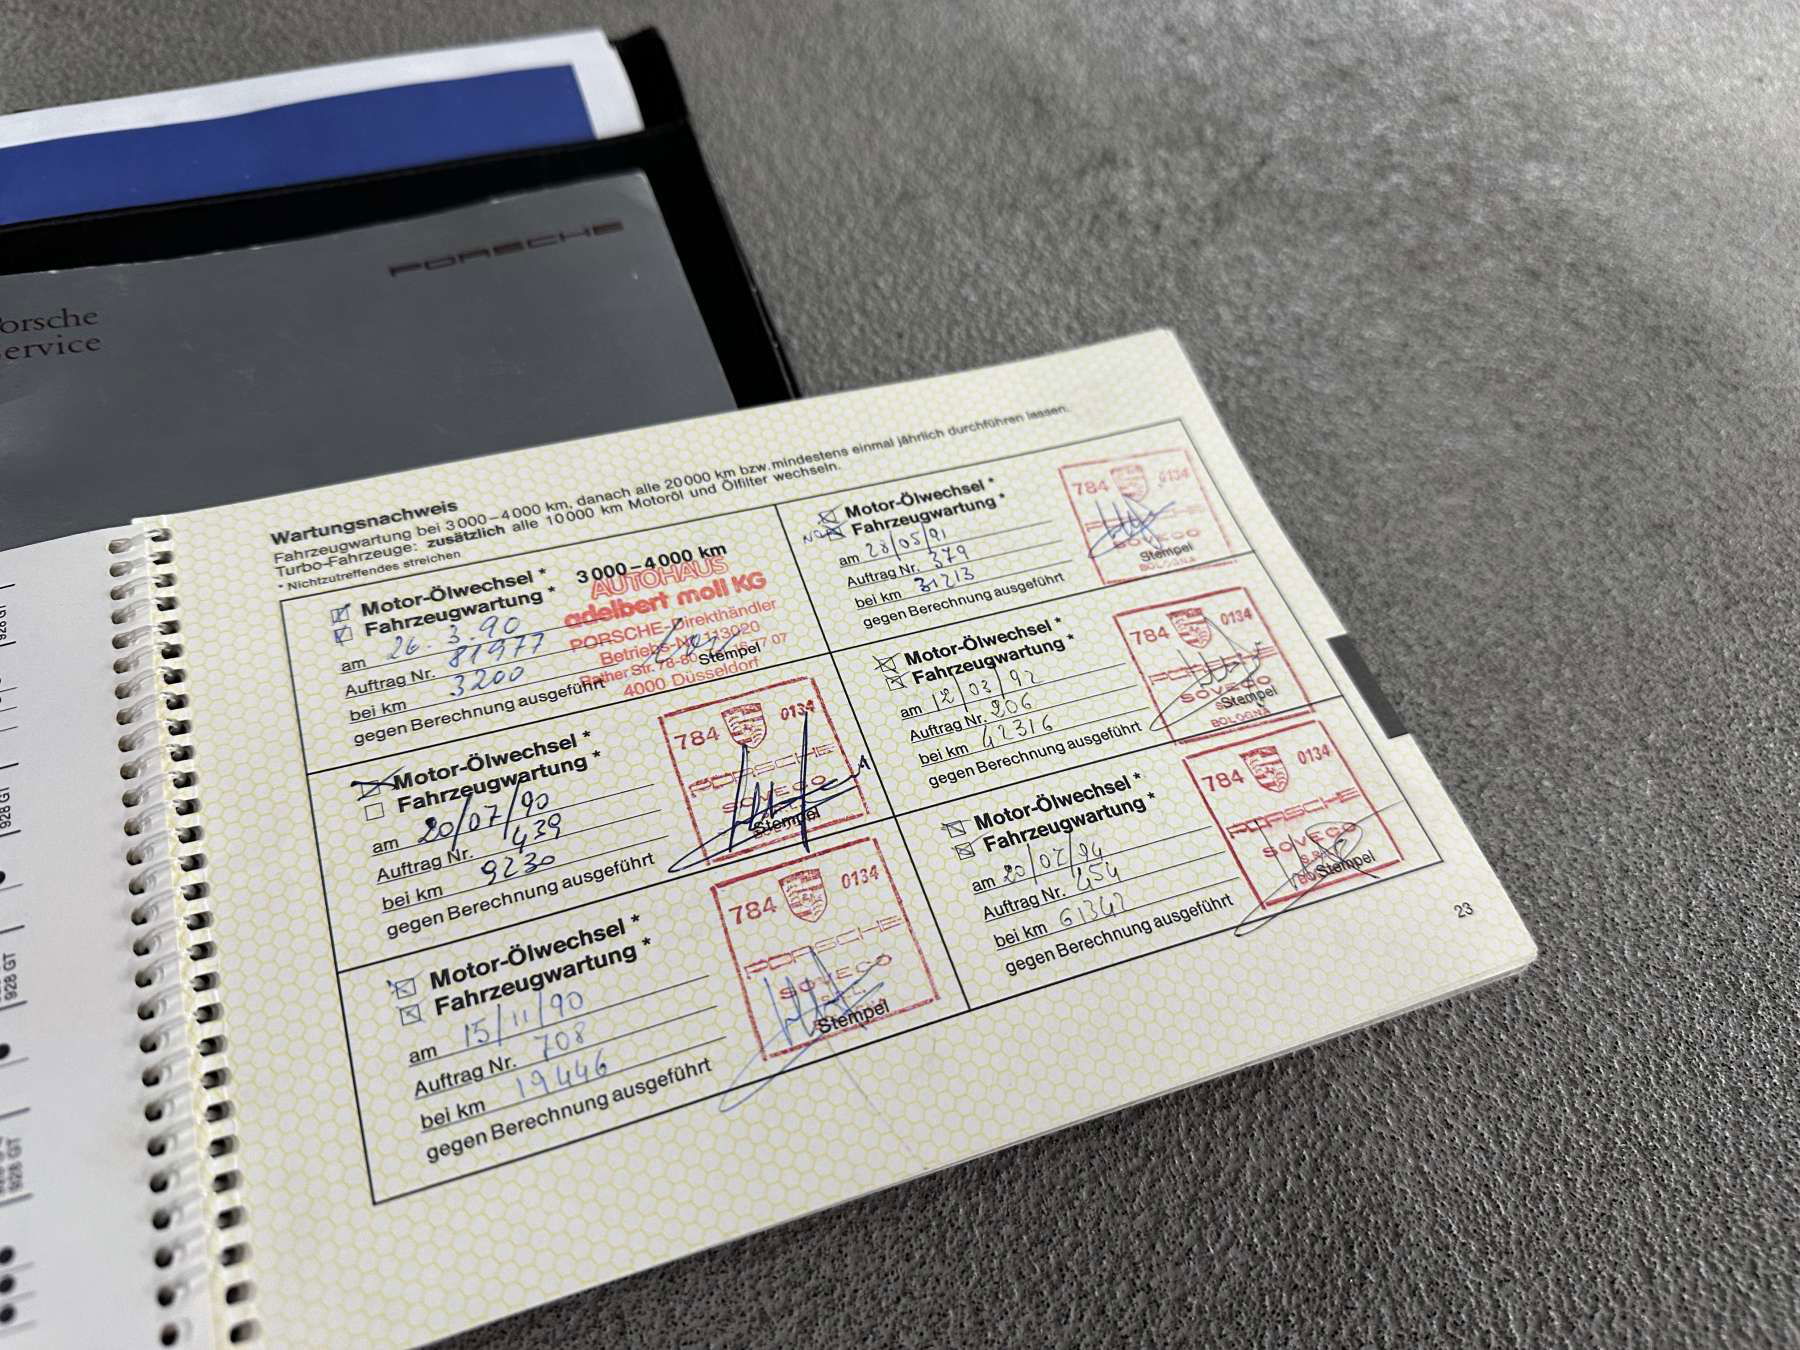 PORSCHE
Porsche
Service
Wartungsnachweis
Fahrzeugwartung bei 3000–4000 km, danach alle 20000 km bzw. mindestens einmal jährlich durchführen lassen.
Turbo-Fahrzeuge: zusätzlich alle 10000 km Motoröl und Ölfilter wechseln.
* Nichtzutreffendes streichen
Motor-Ölwechsel *
3000–4000 km
Fahrzeugwartung *
am 26. 3. 90
Auftrag Nr. 81977
bei km 3200
gegen Berechnung ausgeführt
AUTOHAUS
adelbert moll KG
PORSCHE-Direkthändler
Betriebs-Nr. 113020
Rather Str. 78-80
Stempel
4000 Düsseldorf
Motor-Ölwechsel *
Fahrzeugwartung *
am 20/07/90
Auftrag Nr. 439
bei km 9230
gegen Berechnung ausgeführt
784 0134
PORSCHE
SOVECO
Stempel
Motor-Ölwechsel *
Fahrzeugwartung *
am 15/11/90
Auftrag Nr. 708
bei km 19446
gegen Berechnung ausgeführt
784 0134
PORSCHE
SOVECO
Stempel
Motor-Ölwechsel *
Fahrzeugwartung *
am 28/05/91
Auftrag Nr. 379
bei km 31213
gegen Berechnung ausgeführt
784 0134
PORSCHE
SOVECO
Stempel
BOLOGNA
Motor-Ölwechsel *
Fahrzeugwartung *
am 12/03/92
Auftrag Nr. 206
bei km 42316
gegen Berechnung ausgeführt
784 0134
PORSCHE
SOVECO
Stempel
BOLOGNA
Motor-Ölwechsel *
Fahrzeugwartung *
am 20/07/94
Auftrag Nr. 454
bei km 61342
gegen Berechnung ausgeführt
784 0134
PORSCHE
SOVECO
Stempel
23
928 GT
928 GT
928 GT
928 GT